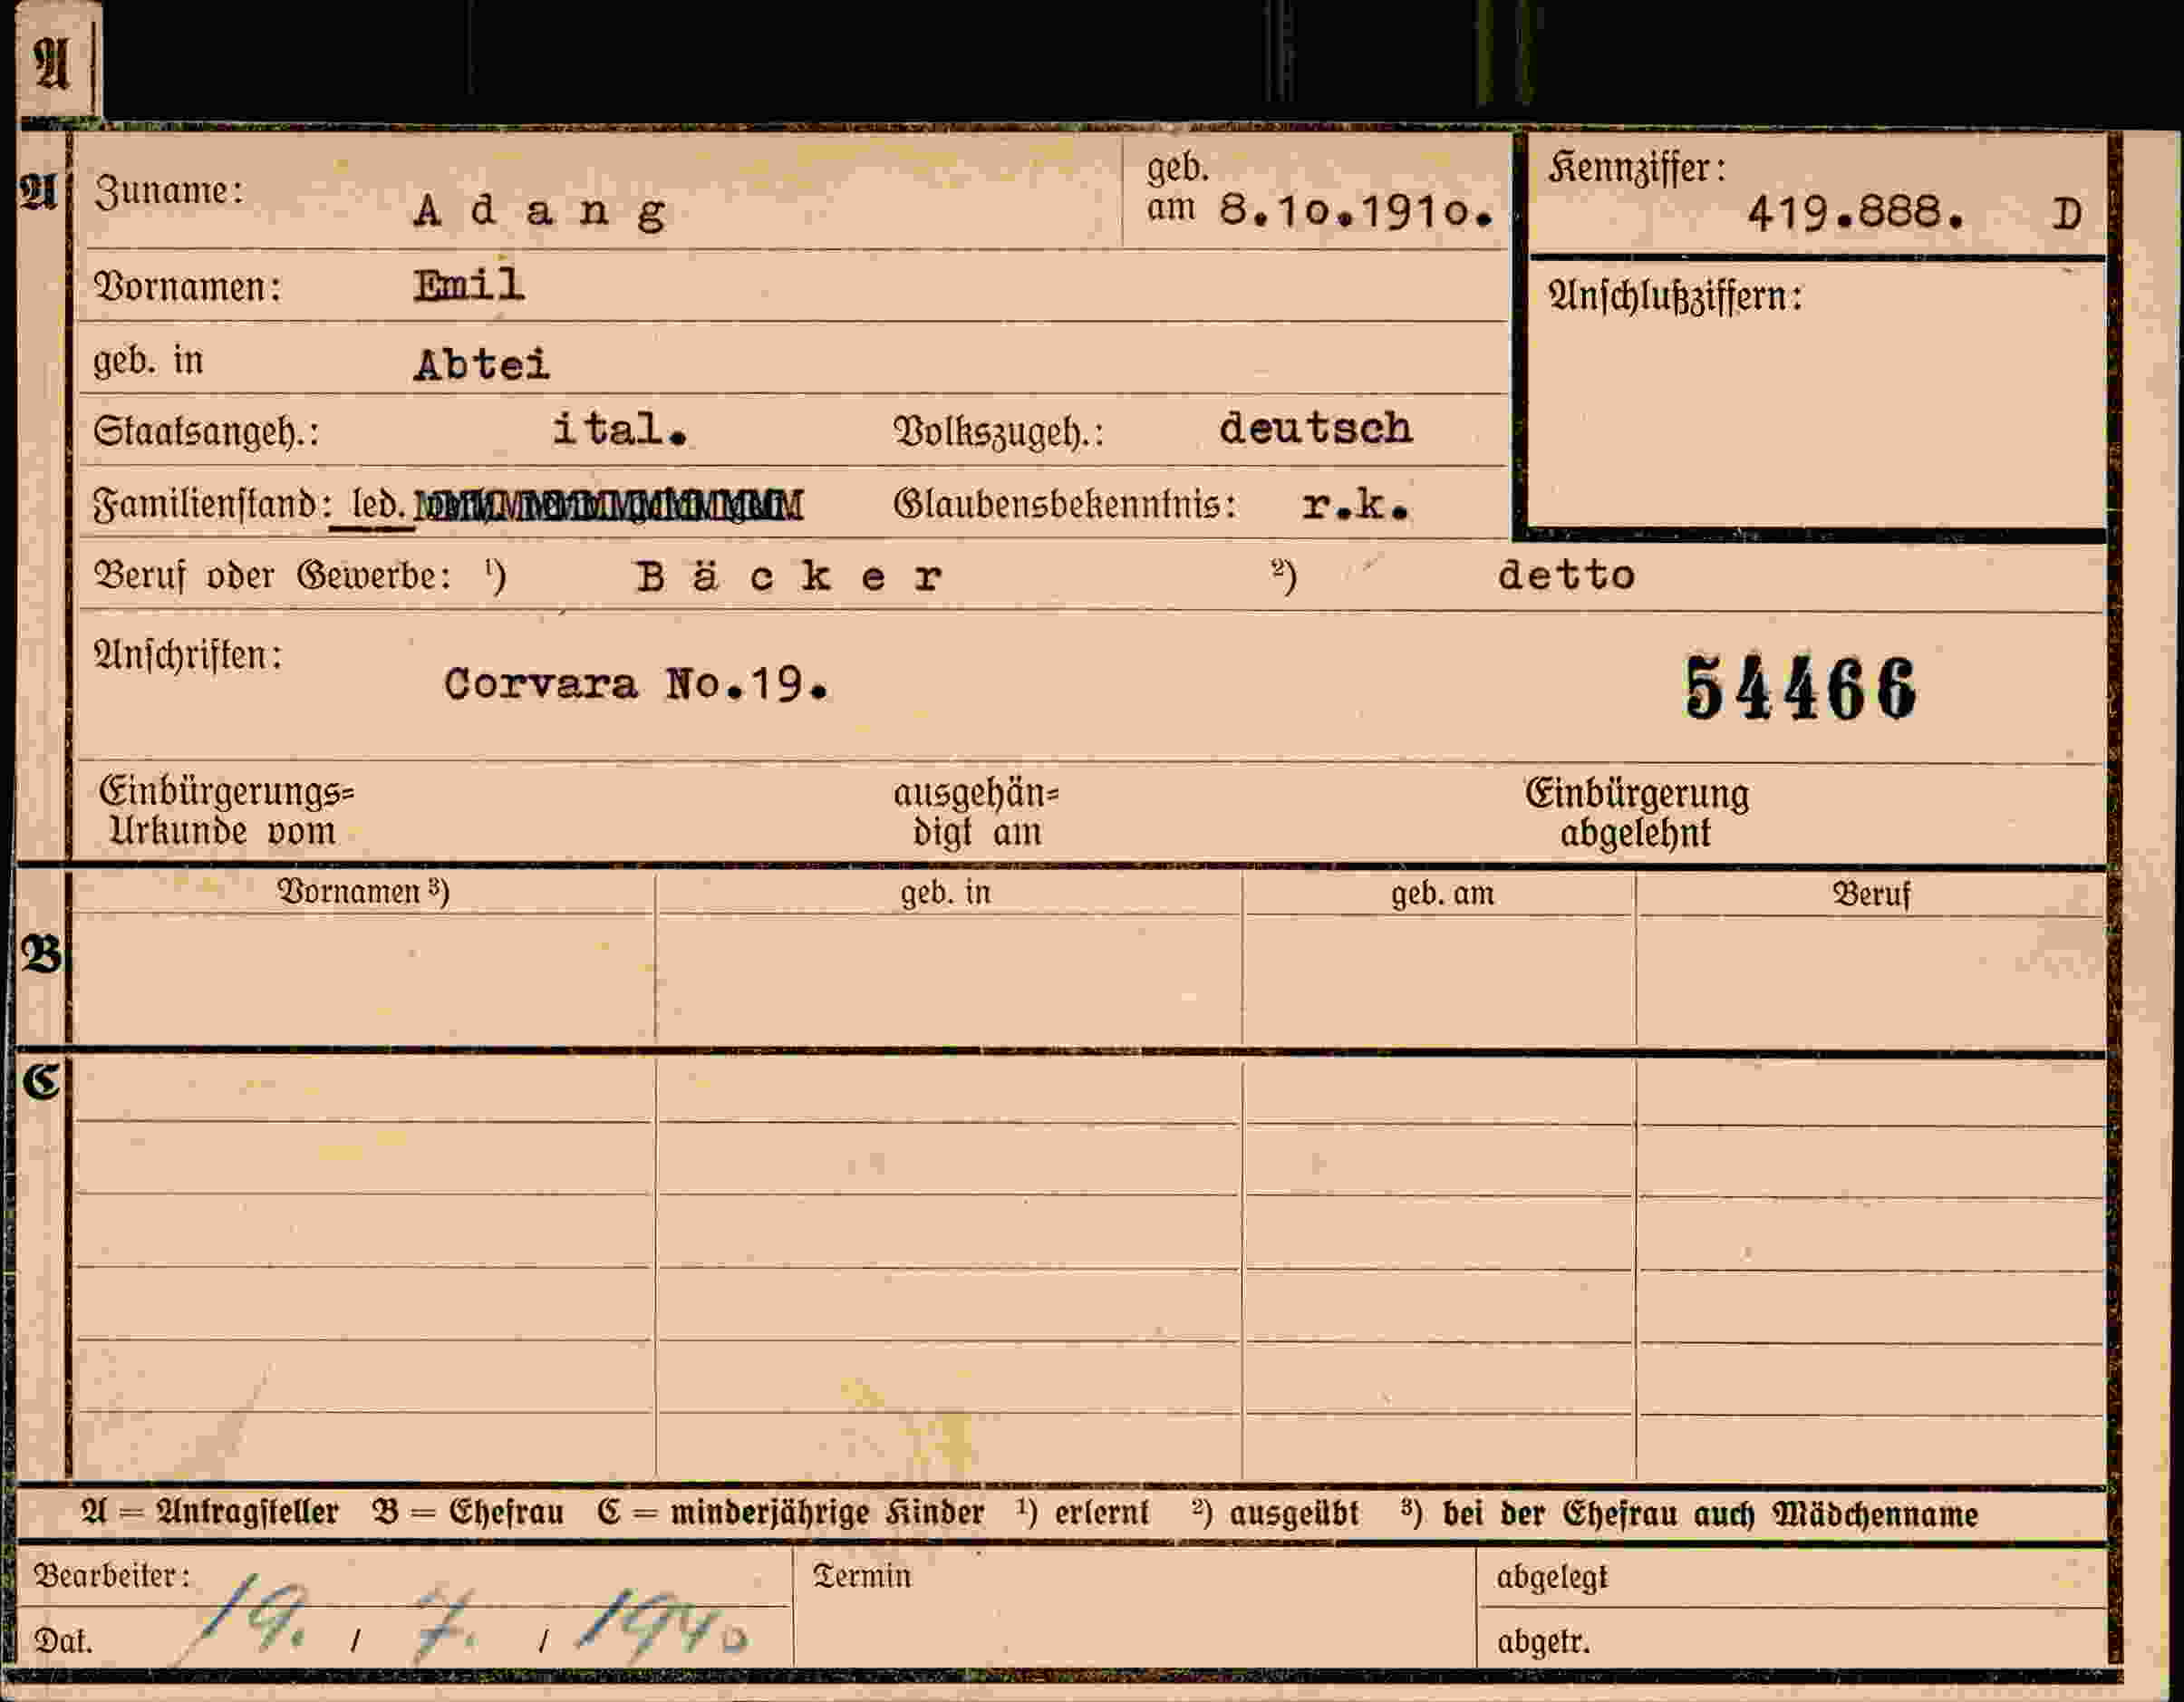 A
A
Zuname: Adang geb. am 8.10.1910.
Kennziffer: 419.888. D
Vornamen: Emil
Anschlußziffern:
geb. in Abtei
Staatsangeh.: ital. Volkszugeh.: deutsch
Familienstand: led. Glaubensbekenntnis: r.k.
Beruf oder Gewerbe: ¹) Bäcker ²) detto
Anschriften: Corvara No.19. 54466
Einbürgerungs= ausgehän= Einbürgerung
Urkunde vom digt am abgelehnt
Vornamen ³) geb. in geb. am Beruf
B
C
A = Antragsteller B = Ehefrau C = minderjährige Kinder ¹) erlernt ²) ausgeübt ³) bei der Ehefrau auch Mädchenname
Bearbeiter: Termin abgelegt
Dat. 19. / 7. / 1940 abgetr.